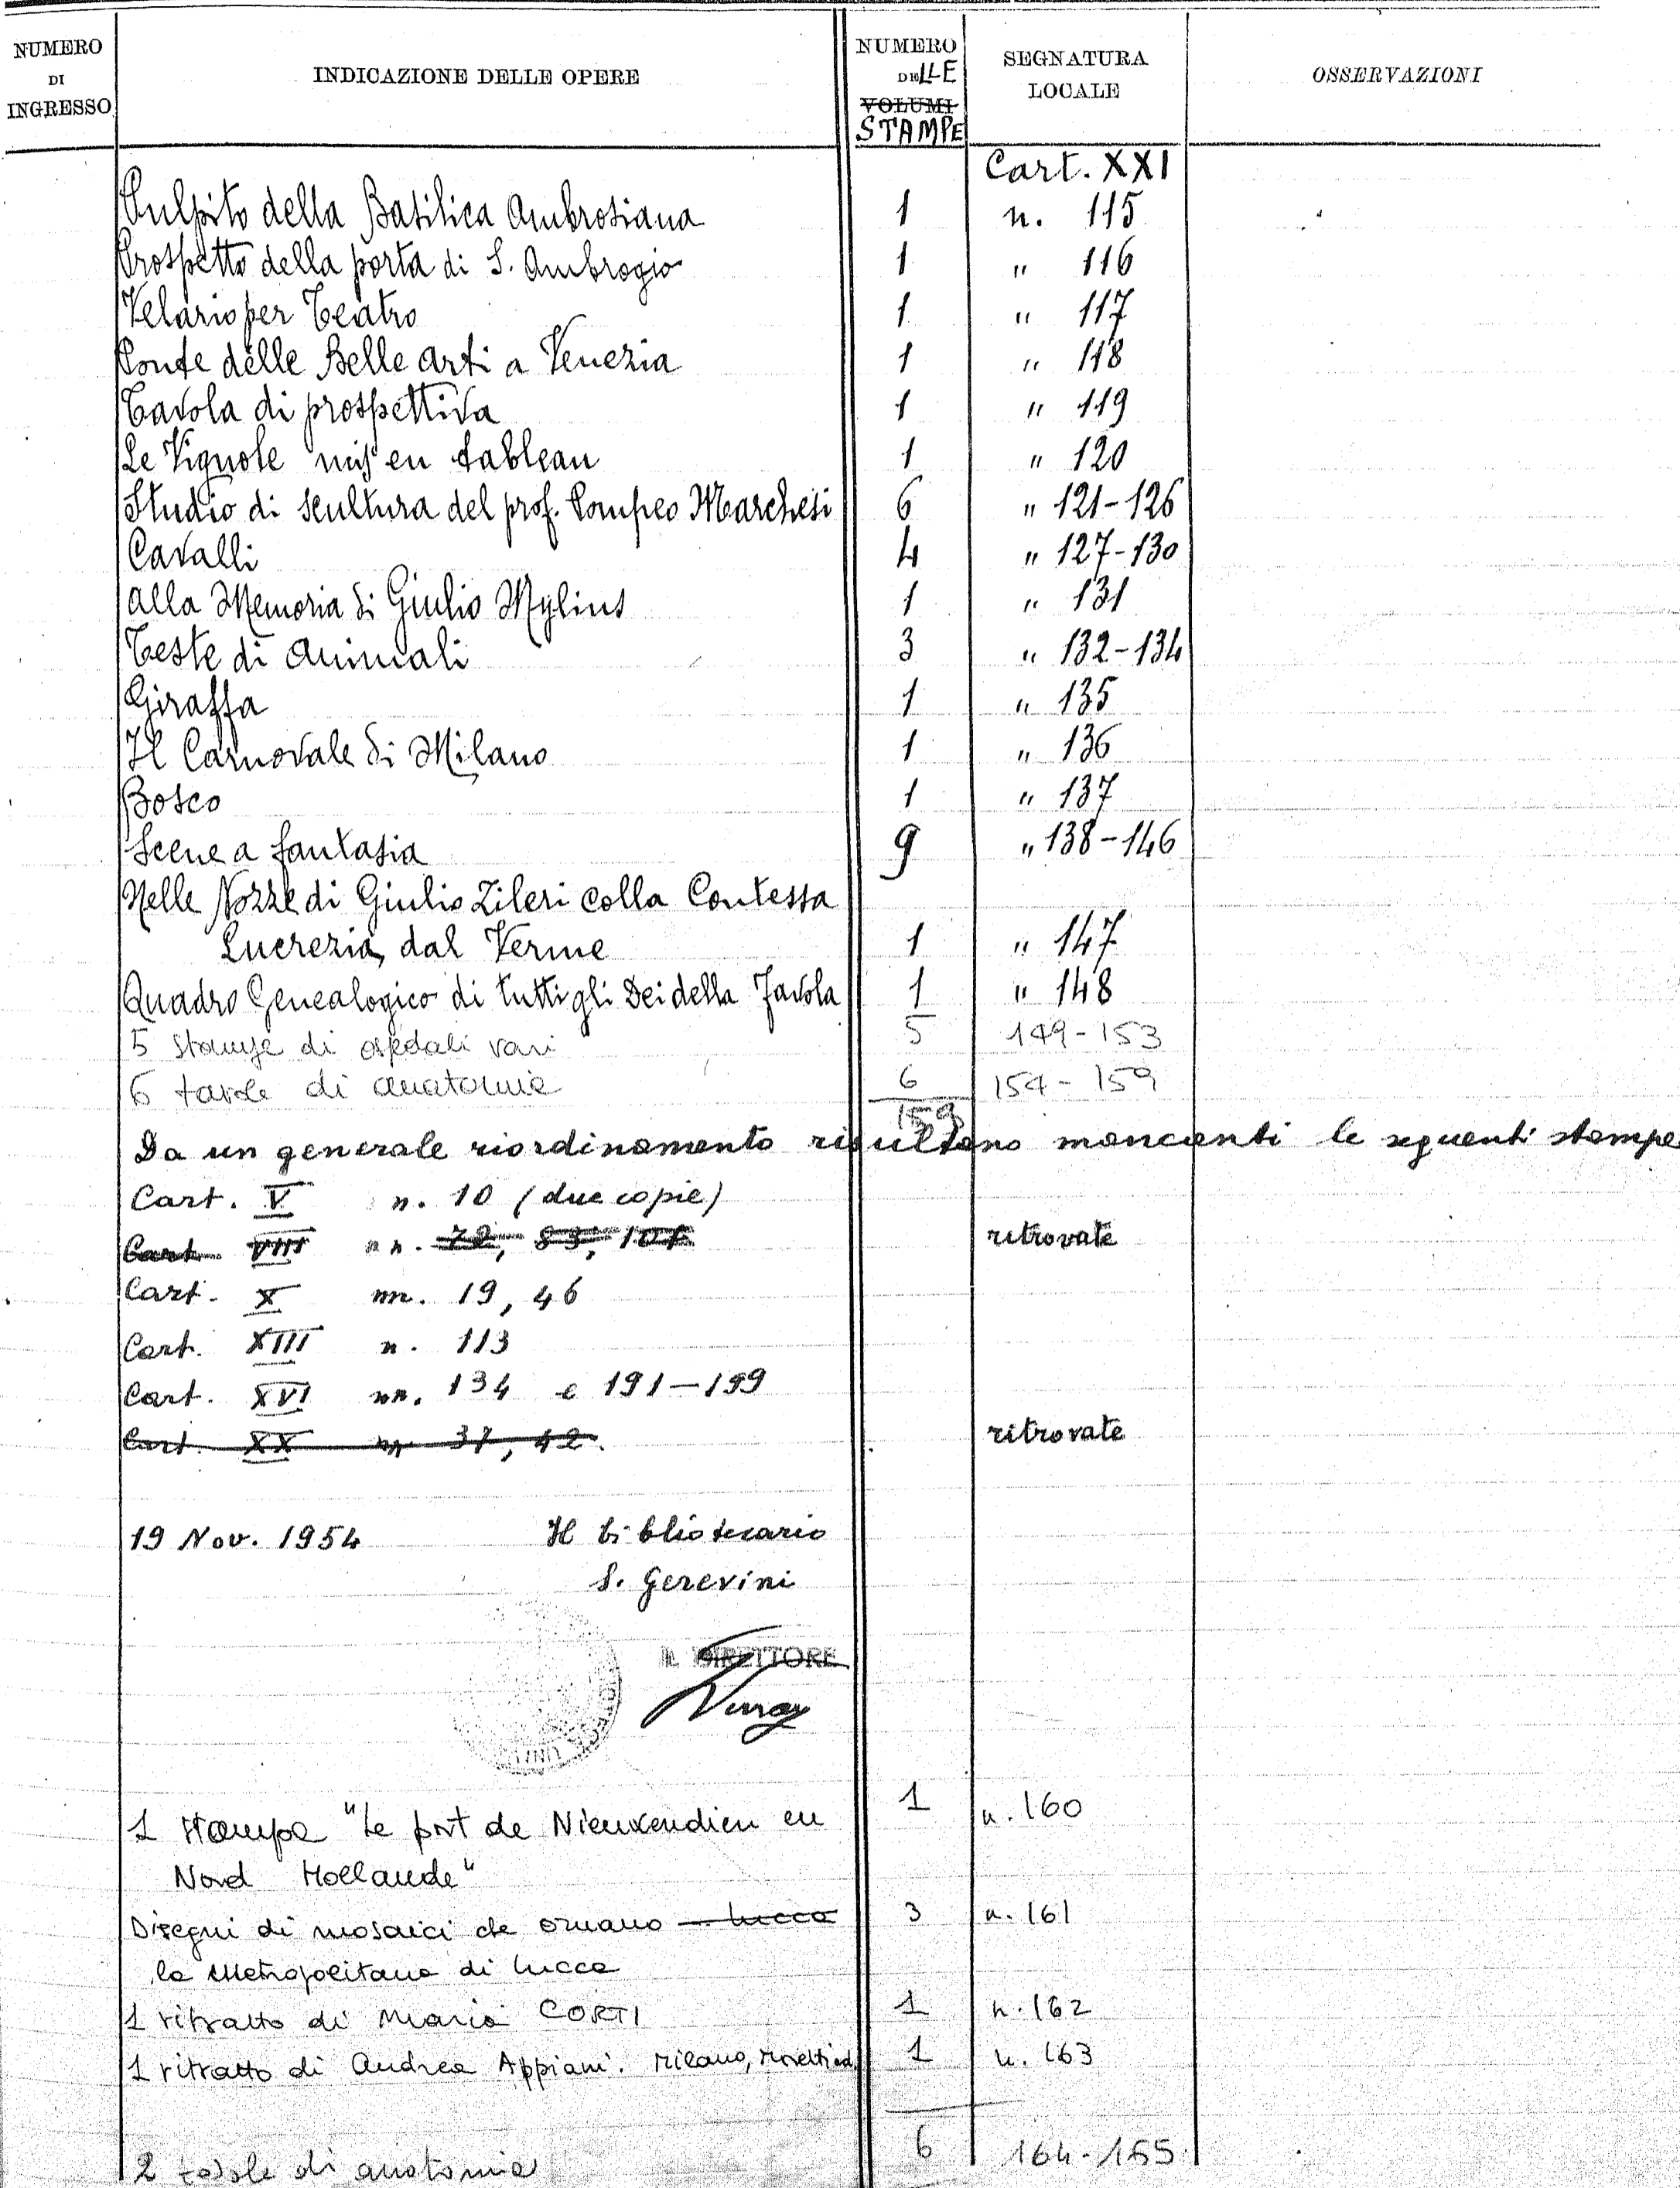 NUMERO DI INGRESSO
INDICAZIONE DELLE OPERE
NUMERO DELLE VOLUMI STAMPE
SEGNATURA LOCALE
OSSERVAZIONI
Cart. XXI
Pulpito della Basilica Ambrosiana 1 n. 115
Prospetto della porta di S. Ambrogio 1 " 116
Velario per Teatro 1 " 117
Ponte delle Belle Arti a Venezia 1 " 118
Tavola di prospettiva 1 " 119
Le Vignole mis en tableau 1 " 120
Studio di scultura del prof. Pompeo Marchesi 6 " 121-126
Cavalli 4 " 127-130
Alla Memoria di Giulio Mylius 1 " 131
Teste di Animali 3 " 132-134
Giraffa 1 " 135
Il Carnovale di Milano 1 " 136
Bosco 1 " 137
Scene a fantasia 9 " 138-146
Nelle Nozze di Giulio Zileri colla Contessa
Lucrezia dal Verme 1 " 147
Quadro Genealogico di tutti gli Dei della Favola 1 " 148
5 stampe di ospedali vari 5 149-153
6 tavole di anatomia 6 154-159
159
Da un generale riordinamento risultano mancanti le seguenti stampe:
Cart. V n. 10 (due copie)
Cart. VIII nn. 72, 83, 107 ritrovate
Cart. X nn. 19, 46
Cart. XIII n. 113
Cart. XVI nn. 134 e 191-199
Cart. XX nn 37, 42. ritrovate
19 Nov. 1954 Il bibliotecario
S. Gerevini
IL DIRETTORE
1 stampa "Le port de Nieuwendieu en 1 n. 160
Nord Hollande"
Disegni di mosaici che ornano Lucca 3 n. 161
la Metropolitana di Lucca
1 ritratto di Maria CORTI 1 n. 162
1 ritratto di Andrea Appiani. Milano, ed. 1 n. 163
6
2 tavole di anatomia 164-165